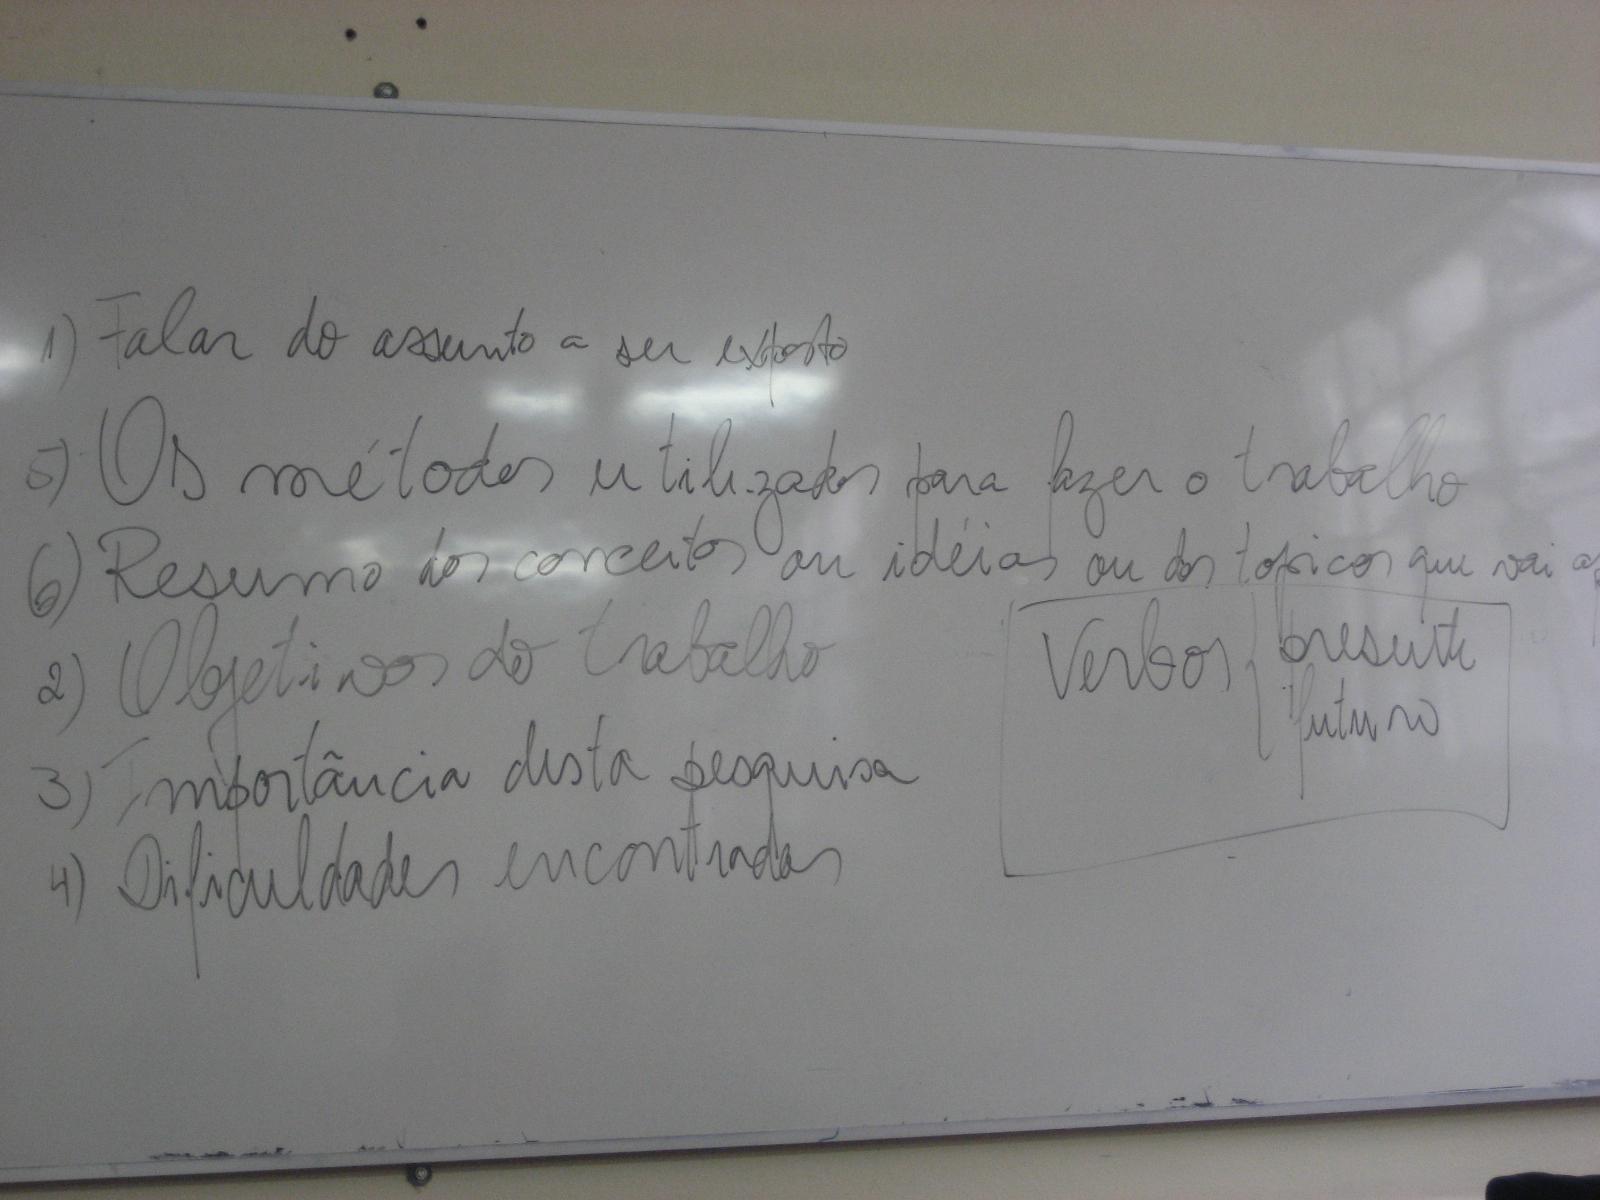 1) Falar do assunto a ser exposto
5) Os métodos utilizados para fazer o trabalho
6) Resumo dos conceitos ou idéias ou dos topicos que vai
2) Objetivos do trabalho
3) Importância desta pesquisa
4) Dificuldades encontradas
Verbos { presente
futuro